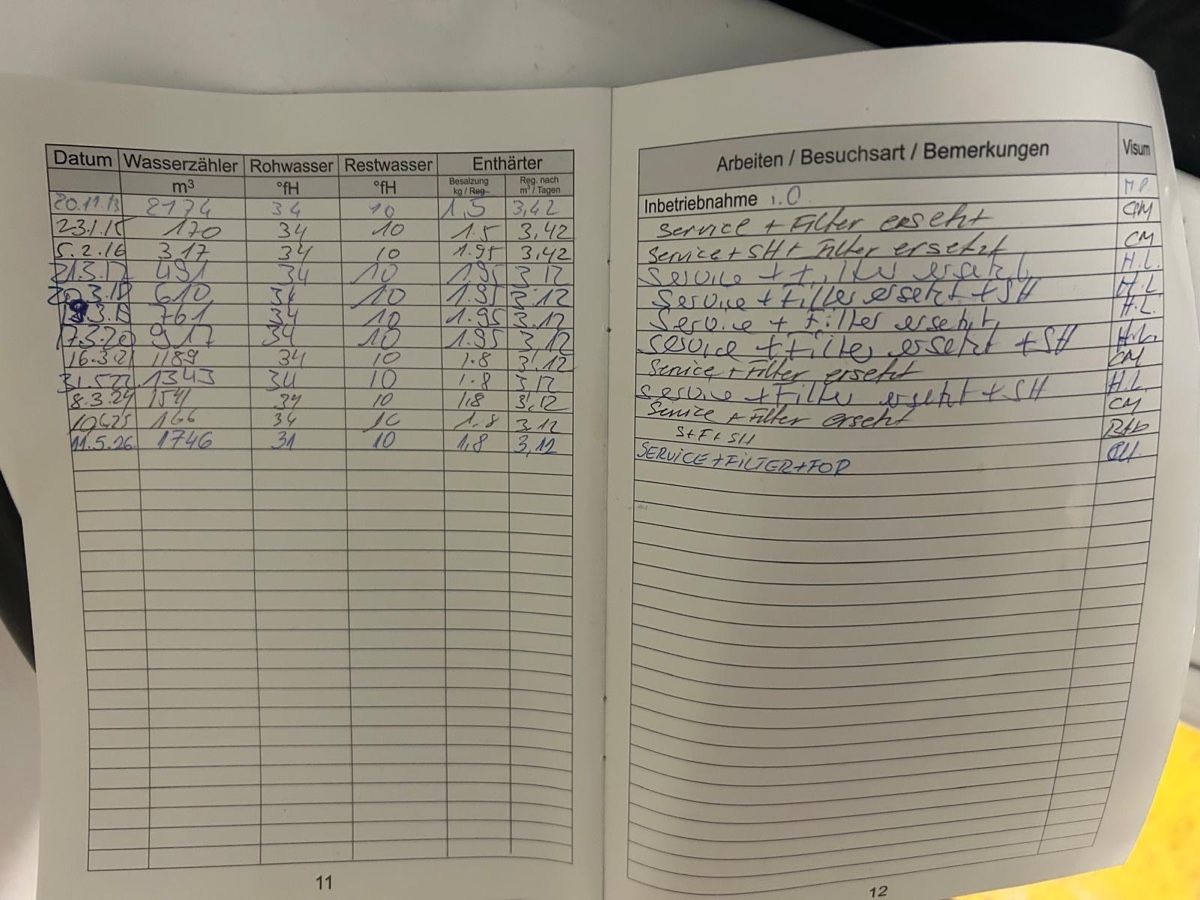 Datum Wasserzähler Rohwasser Restwasser Enthärter
m³ °fH °fH Besalzung kg / Reg. Reg. nach m³ / Tagen
20.11.13 2174 34 10 1,5 3,42
23.1.15 170 34 10 1.5 3,42
5.2.16 317 34 10 1.95 3,42
21.3.17 491 34 10 1.95 3.12
20.3.18 610 34 10 1.95 3.12
761 34 10 1.95 3.12
17.3.20 917 34 10 1.95 3,12
16.3.21 1189 34 10 1.8 3,12
31.5.22 1343 34 10 1.8 3,12
8.3.24 1541 34 10 1.8 3,12
166 34 10 1.8 3.12
11.5.26 1746 31 10 1,8 3,12
11
Arbeiten / Besuchsart / Bemerkungen Visum
Inbetriebnahme i.O
Service + Filter ersetzt CM
Service + SH + Filter ersetzt CM
Service + Filter ersetzt H.L.
Service + Filter ersetzt + SH H.L
Service + Filter ersetzt H.L.
Service + Filter ersetzt + SH H.L.
Service + Filter ersetzt CM
Service + Filter ersetzt + SH H.L.
Service + Filter ersetzt CM
S+F+SH
SERVICE+FILTER+FOP
12